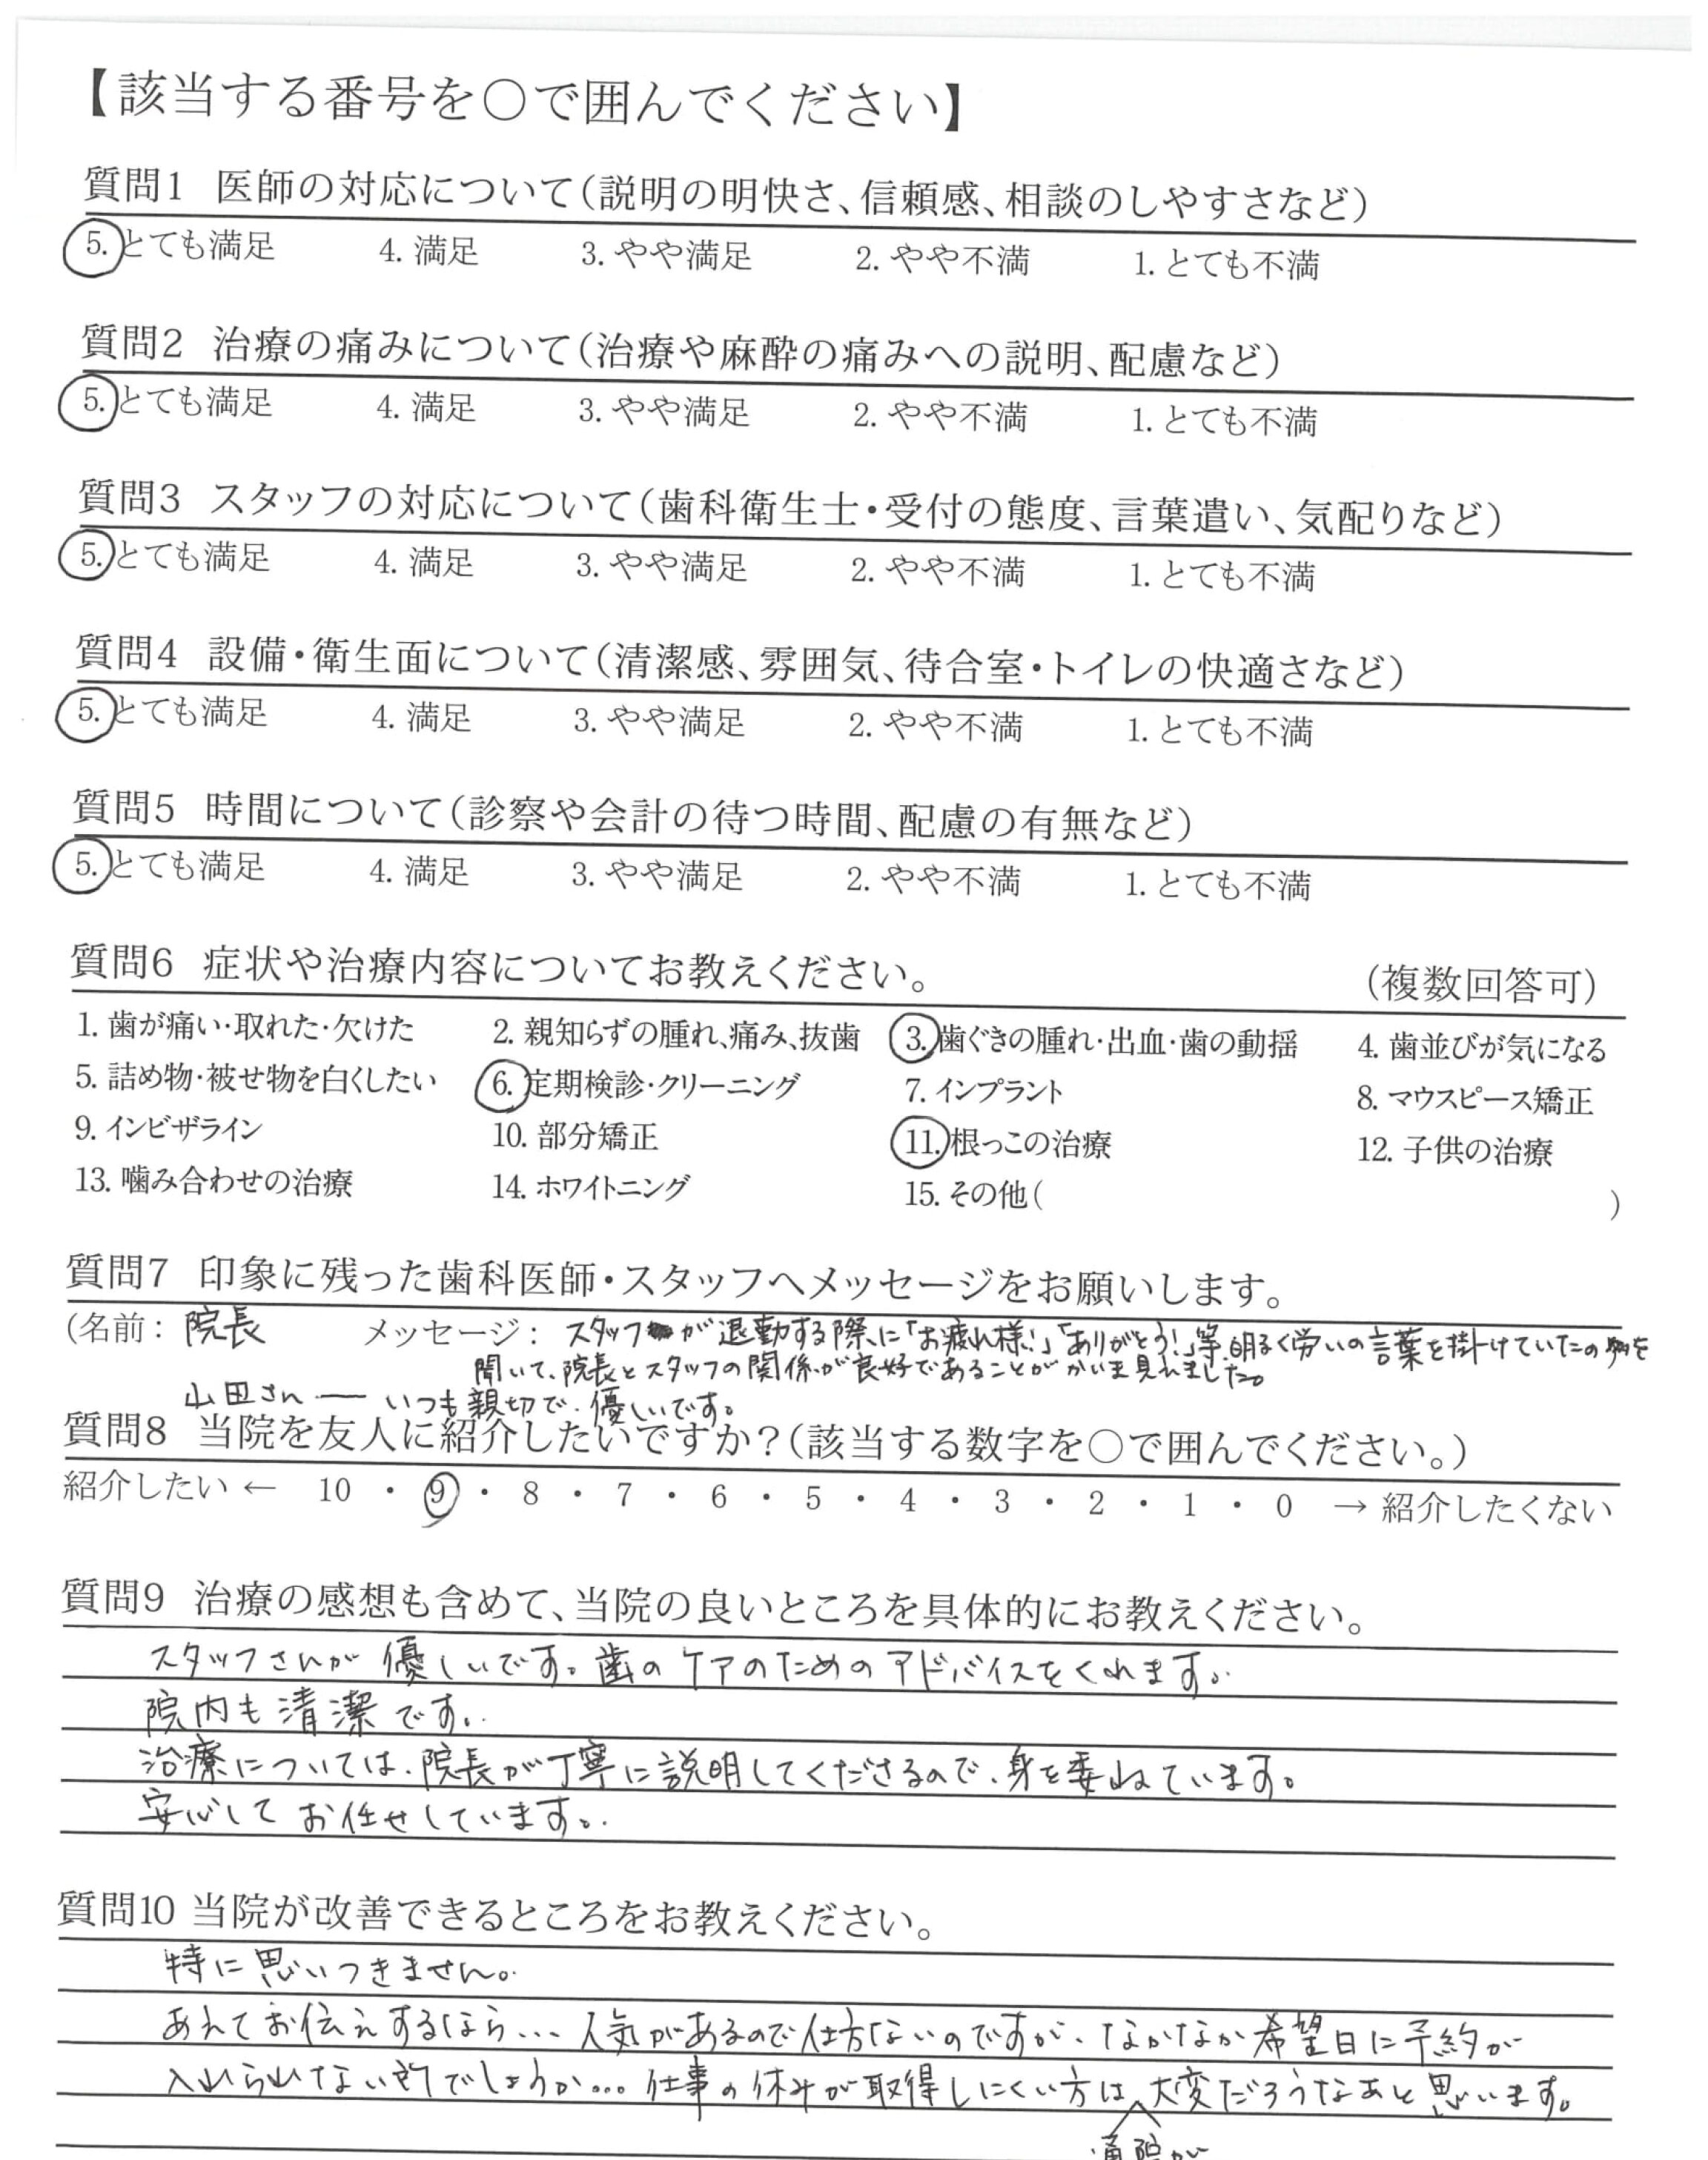 【該当する番号を○で囲んでください】
質問1 医師の対応について(説明の明快さ、信頼感、相談のしやすさなど)
5. とても満足 4. 満足 3. やや満足 2. やや不満 1. とても不満
質問2 治療の痛みについて(治療や麻酔の痛みへの説明、配慮など)
5. とても満足 4. 満足 3. やや満足 2. やや不満 1. とても不満
質問3 スタッフの対応について(歯科衛生士・受付の態度、言葉遣い、気配りなど)
5. とても満足 4. 満足 3. やや満足 2. やや不満 1. とても不満
質問4 設備・衛生面について(清潔感、雰囲気、待合室・トイレの快適さなど)
5. とても満足 4. 満足 3. やや満足 2. やや不満 1. とても不満
質問5 時間について(診察や会計の待つ時間、配慮の有無など)
5. とても満足 4. 満足 3. やや満足 2. やや不満 1. とても不満
質問6 症状や治療内容についてお教えください。 (複数回答可)
1. 歯が痛い・取れた・欠けた 2. 親知らずの腫れ、痛み、抜歯 3. 歯ぐきの腫れ・出血・歯の動揺 4. 歯並びが気になる
5. 詰め物・被せ物を白くしたい 6. 定期検診・クリーニング 7. インプラント 8. マウスピース矯正
9. インビザライン 10. 部分矯正 11. 根っこの治療 12. 子供の治療
13. 噛み合わせの治療 14. ホワイトニング 15. その他( )
質問7 印象に残った歯科医師・スタッフへメッセージをお願いします。
(名前: 院長 メッセージ: スタッフが退勤する際に「お疲れ様!」「ありがとう!」等、明るく労いの言葉を掛けていたのを
聞いて、院長とスタッフの関係が良好であることがかいま見れました。
山田さん ― いつも親切で、優しいです。
質問8 当院を友人に紹介したいですか?(該当する数字を○で囲んでください。)
紹介したい ← 10 ・ 9 ・ 8 ・ 7 ・ 6 ・ 5 ・ 4 ・ 3 ・ 2 ・ 1 ・ 0 → 紹介したくない
質問9 治療の感想も含めて、当院の良いところを具体的にお教えください。
スタッフさんが優しいです。歯のケアのためのアドバイスをくれます。
院内も清潔です。
治療については、院長が丁寧に説明してくださるので、身を委ねています。
安心してお任せしています。
質問10 当院が改善できるところをお教えください。
特に思いつきません。
あえてお伝えするなら… 人気があるので仕方ないのですが、なかなか希望日に予約が
入れられない所でしょうか… 仕事の休みが取得しにくい方は大変だろうなあと思います。
通院が